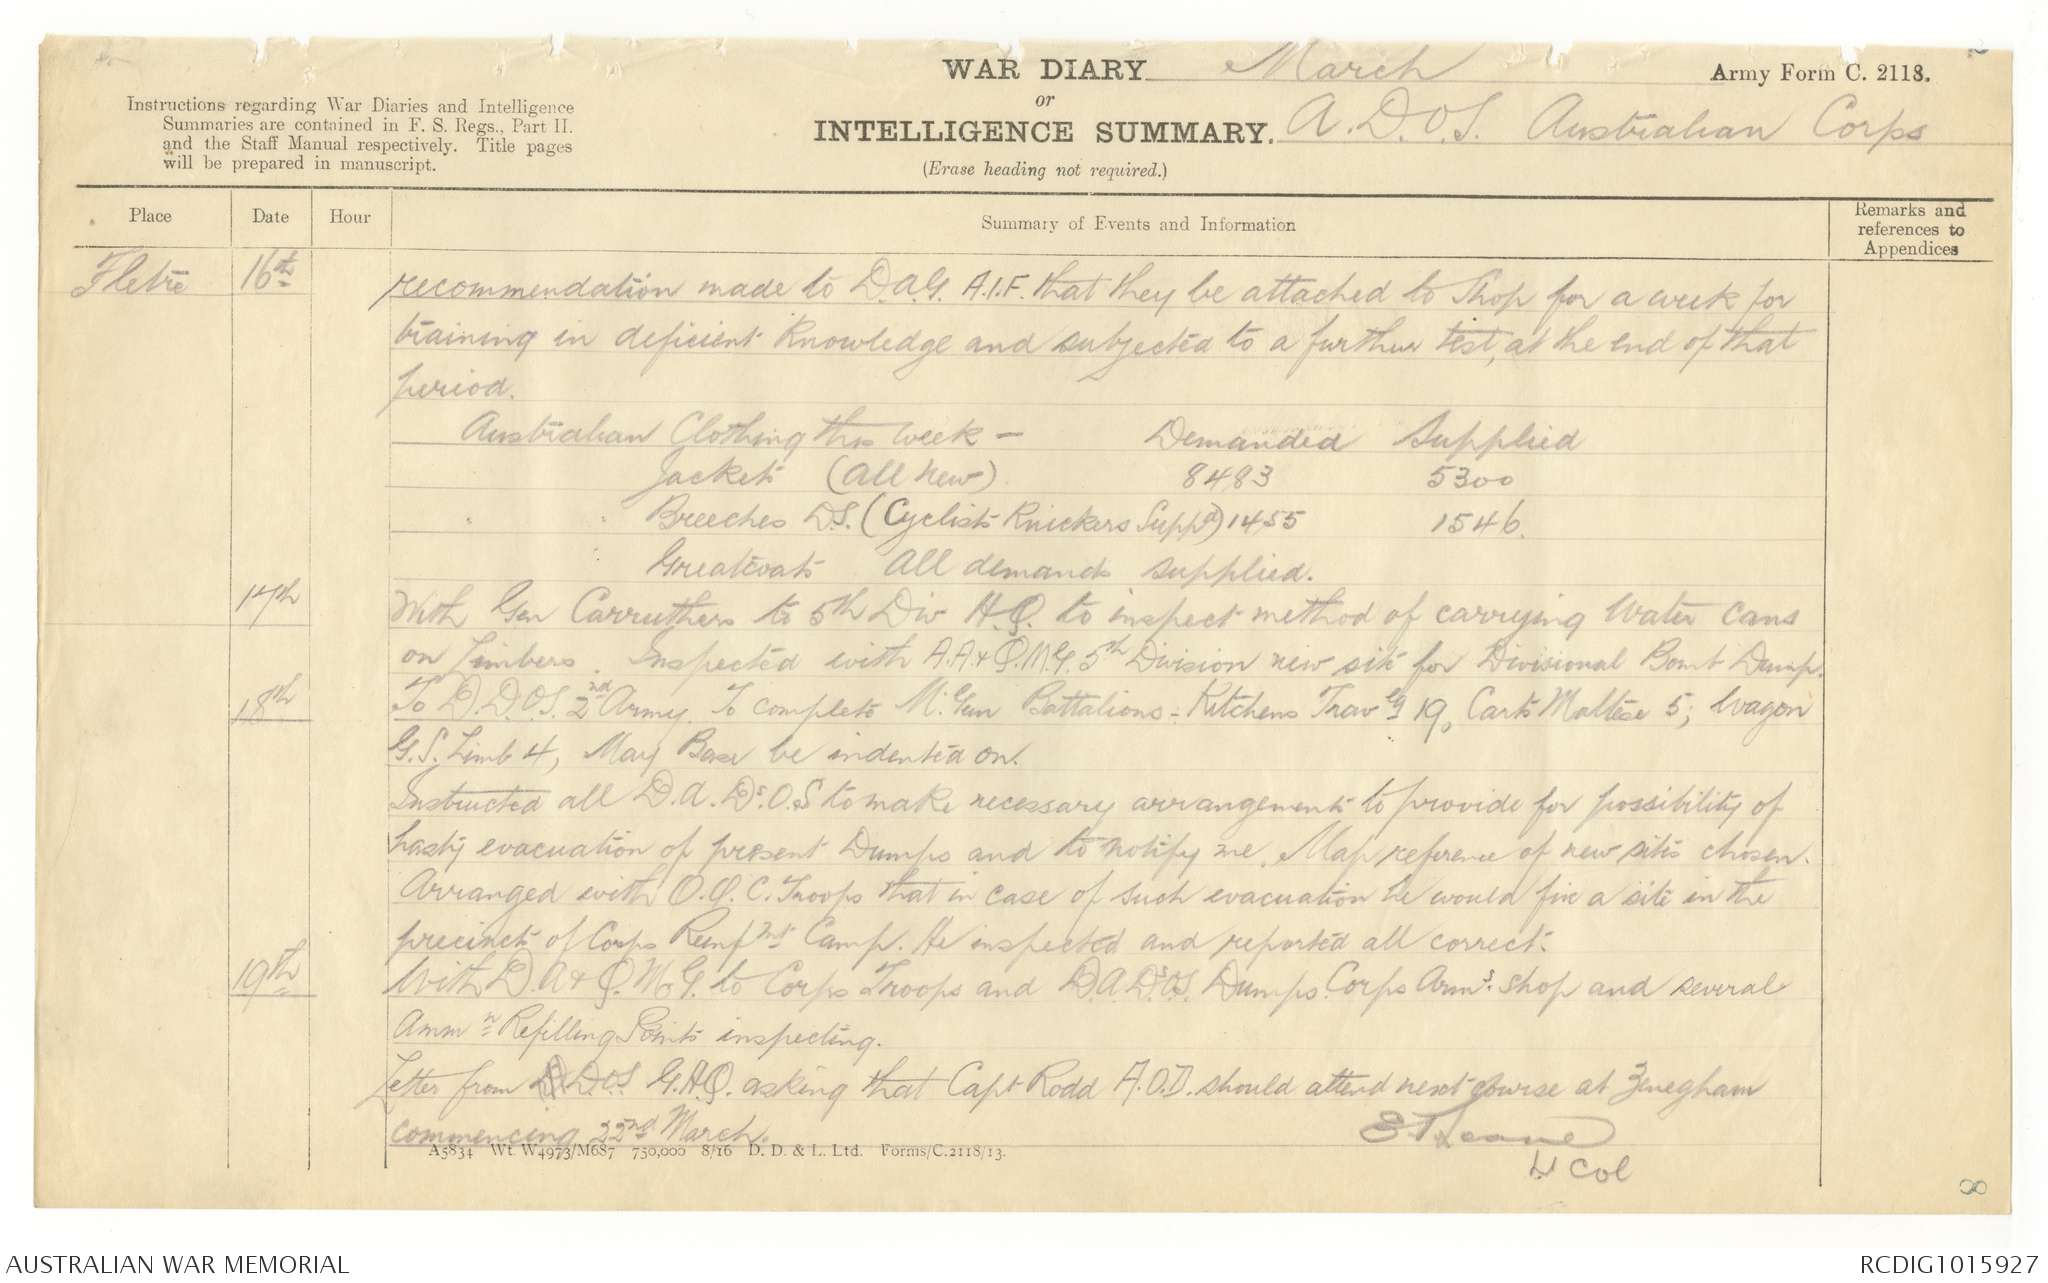 WAR DIARY March
Army Form C. 2118.
or
INTELLIGENCE SUMMARY. A.D.O.S. Australian Corps
(Erase heading not required.)
Instructions regarding War Diaries and Intelligence
Summaries are contained in F. S. Regs., Part II.
and the Staff Manual respectively. Title pages
will be prepared in manuscript.
Place Date Hour Summary of Events and Information Remarks and references to Appendices
Fletre 16th recommendation made to D.A.G. A.I.F. that they be attached to Shop for a week for
training in deficient knowledge and subjected to a further test, at the end of that
period.
Australian Clothing this week — Demanded Supplied
Jackets (All new) 8483 5300
Breeches D.S. (Cyclists Knickers Suppd) 1455 1546.
Greatcoats All demands supplied.
17th With Gen Carruthers to 5th Div H.Q. to inspect method of carrying water cans
on Limbers. Inspected with A.A.&Q.M.G. 5th Division new site for Divisional Bomb Dump.
18th To D.D.O.S. 2nd Army. To complete M. Gun Battalions - Kitchens Travlg 19, Carts Maltese 5; Wagon
G.S. Limb 4, May Base be indented on.
Instructed all D.A.Ds.O.S to make necessary arrangements to provide for possibility of
hasty evacuation of present Dumps and to notify me Map reference of new sites chosen.
Arranged with O.O.C. Troops that in case of such evacuation he would fix a site in the
precincts of Corps Reinfmts Camp. He inspected and reported all correct.
19th With D.A&Q.M.G. to Corps Troops and D.A.Ds.O.S. Dumps. Corps Armrs. shop and several
Ammn Refilling Points inspecting.
Letter from D.D.O.S. G.H.Q. asking that Capt Rodd A.O.D. should attend next course at Zeneghem
commencing 22nd March.
Lt Col
A5834 Wt. W4973/M687 750,000 8/16 D. D. & L. Ltd. Forms/C.2118/13.
8
AUSTRALIAN WAR MEMORIAL RCDIG1015927